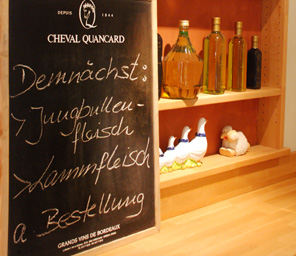 DEPUIS 1844
CHEVAL QUANCARD
Demnächst:
> Jungbullen-
fleisch
> Lammfleisch
a Bestellung
GRANDS VINS DE BORDEAUX